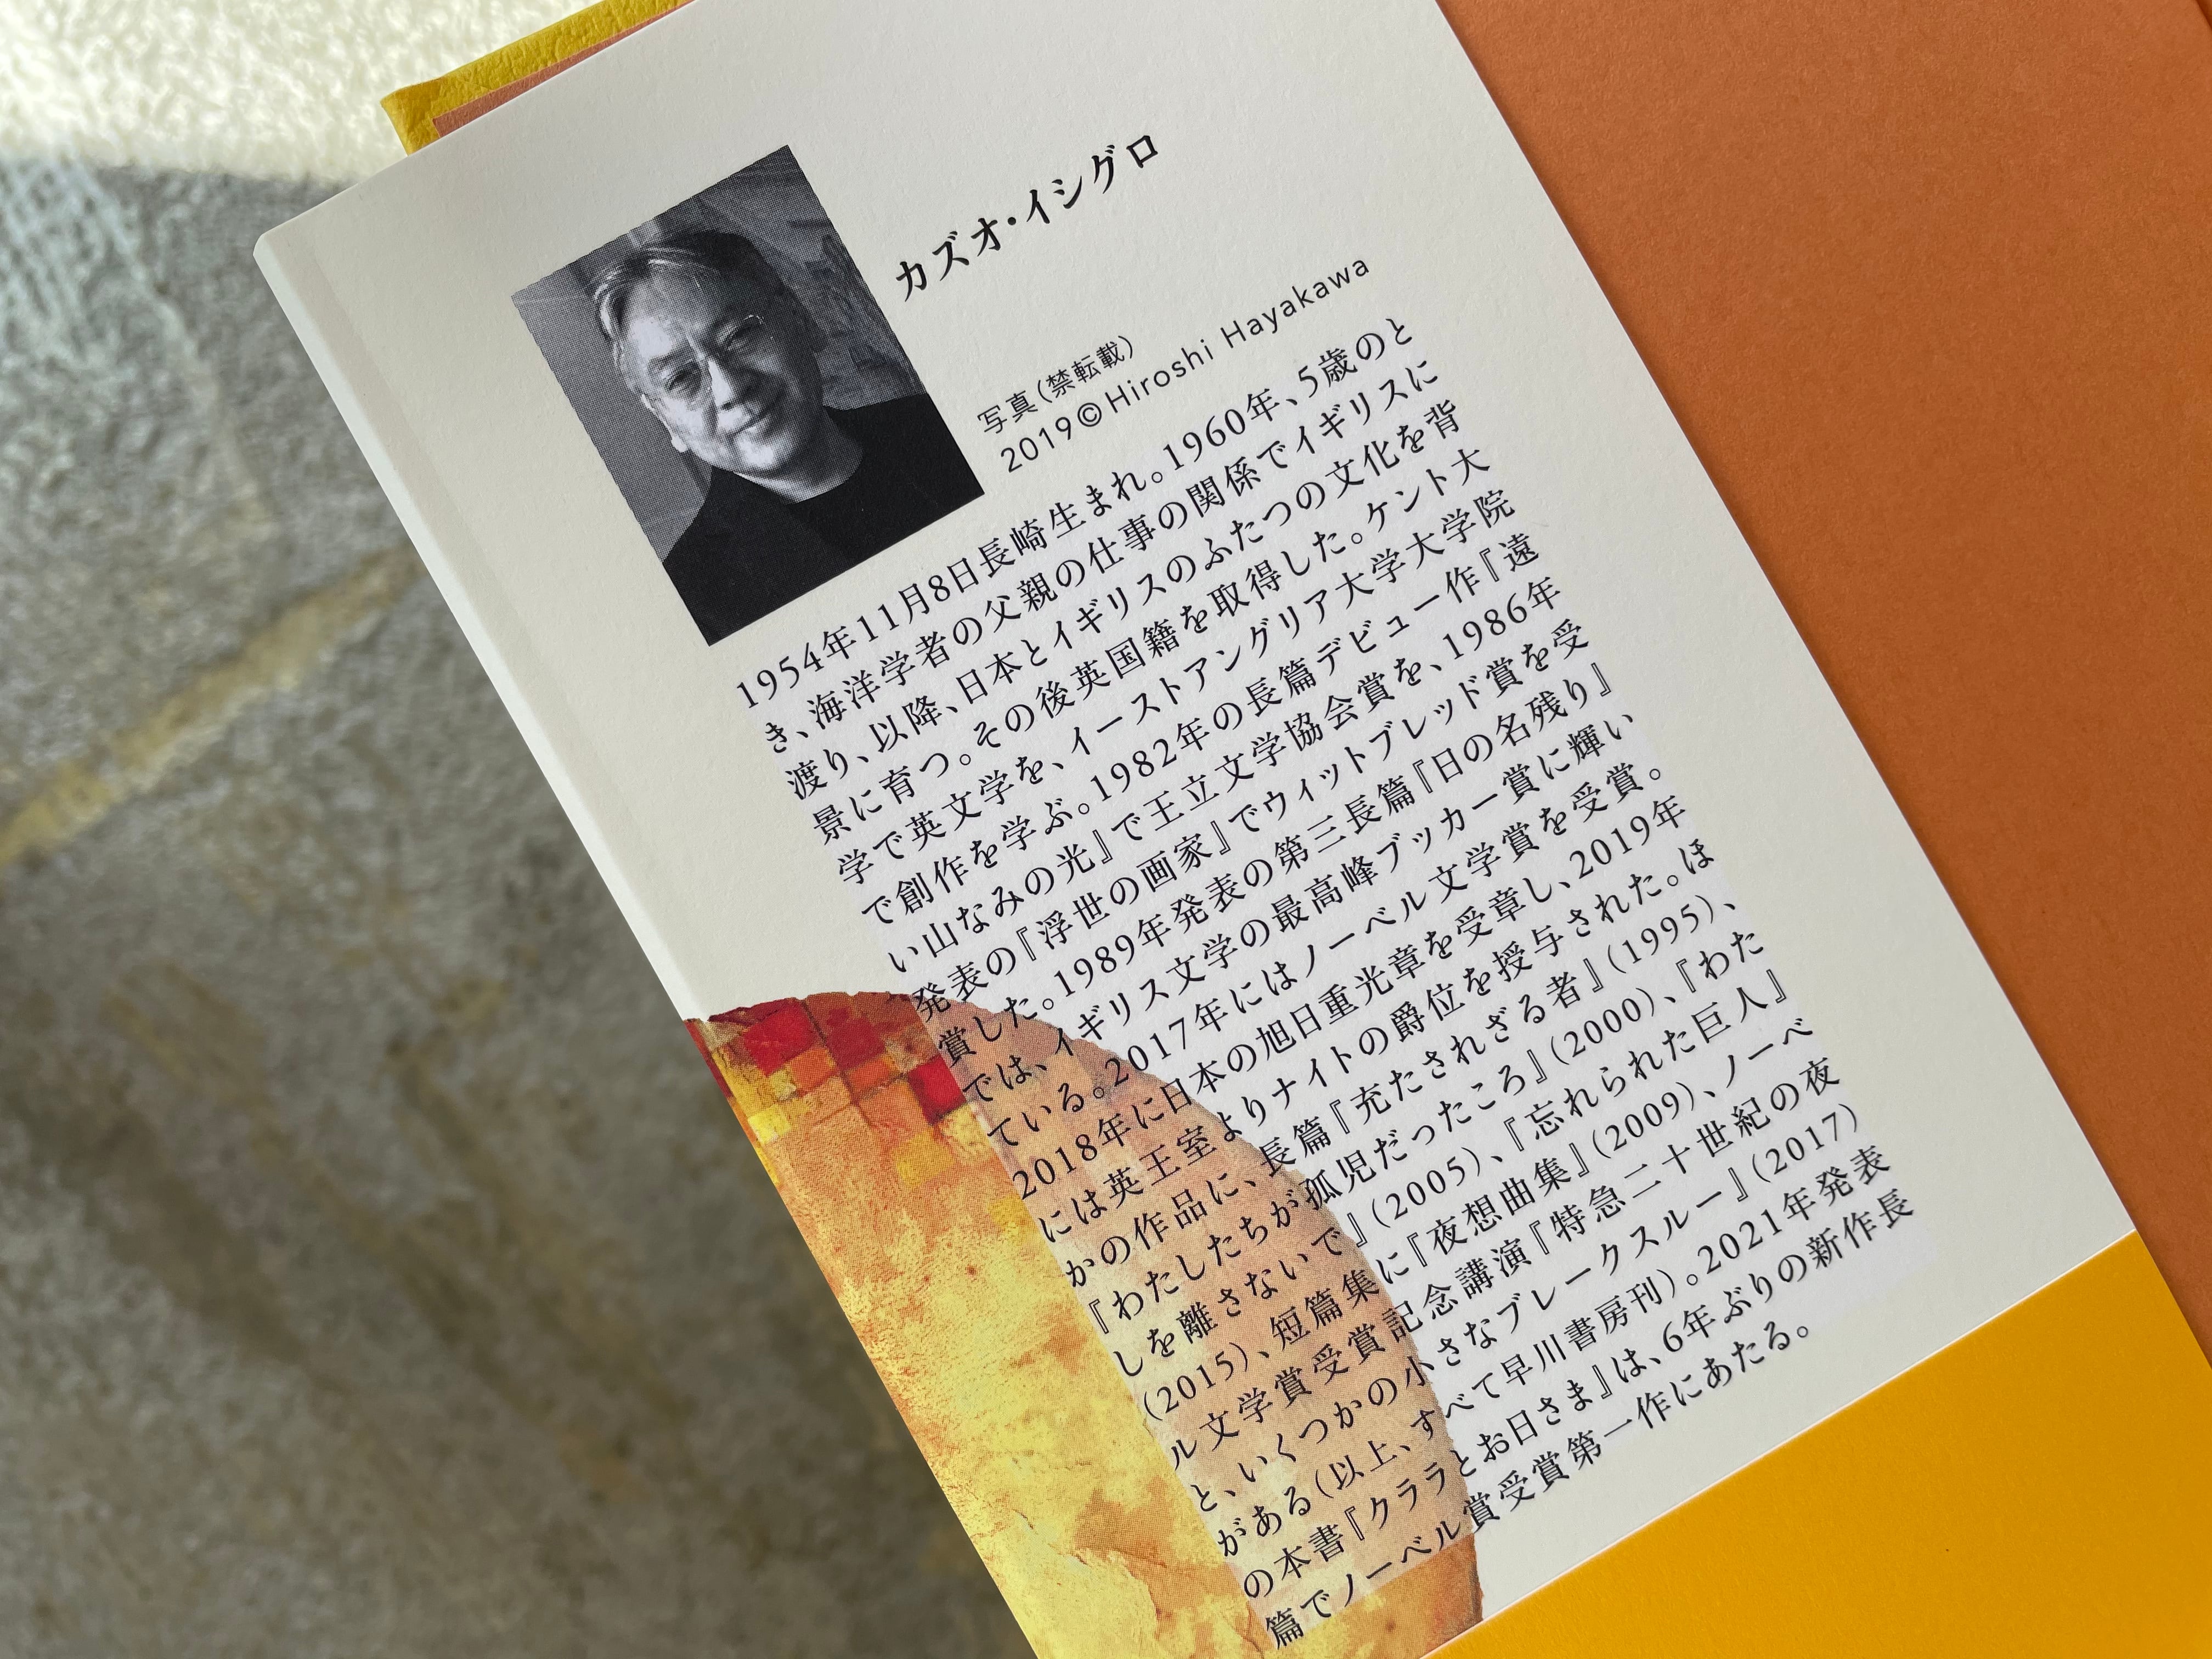 カズオ・イシグロ
写真(禁転載)
2019©Hiroshi Hayakawa
1954年11月8日長崎生まれ。1960年、5歳のと
き、海洋学者の父親の仕事の関係でイギリスに
渡り、以降、日本とイギリスのふたつの文化を背
景に育つ。その後英国籍を取得した。ケント大
学で英文学を、イーストアングリア大学大学院
で創作を学ぶ。1982年の長篇デビュー作『遠
い山なみの光』で王立文学協会賞を、1986年
発表の『浮世の画家』でウィットブレッド賞を受
賞した。1989年発表の第三長篇『日の名残り』
では、イギリス文学の最高峰ブッカー賞に輝い
ている。2017年にはノーベル文学賞を受賞。
2018年に日本の旭日重光章を受章し、2019年
には英王室よりナイトの爵位を授与された。ほ
かの作品に、長篇『充たされざる者』(1995)、
『わたしたちが孤児だったころ』(2000)、『わた
しを離さないで』(2005)、『忘れられた巨人』
(2015)、短篇集に『夜想曲集』(2009)、ノーベ
ル文学賞受賞記念講演『特急二十世紀の夜
と、いくつかの小さなブレークスルー』(2017)
がある(以上、すべて早川書房刊)。2021年発表
の本書『クララとお日さま』は、6年ぶりの新作長
篇でノーベル賞受賞第一作にあたる。